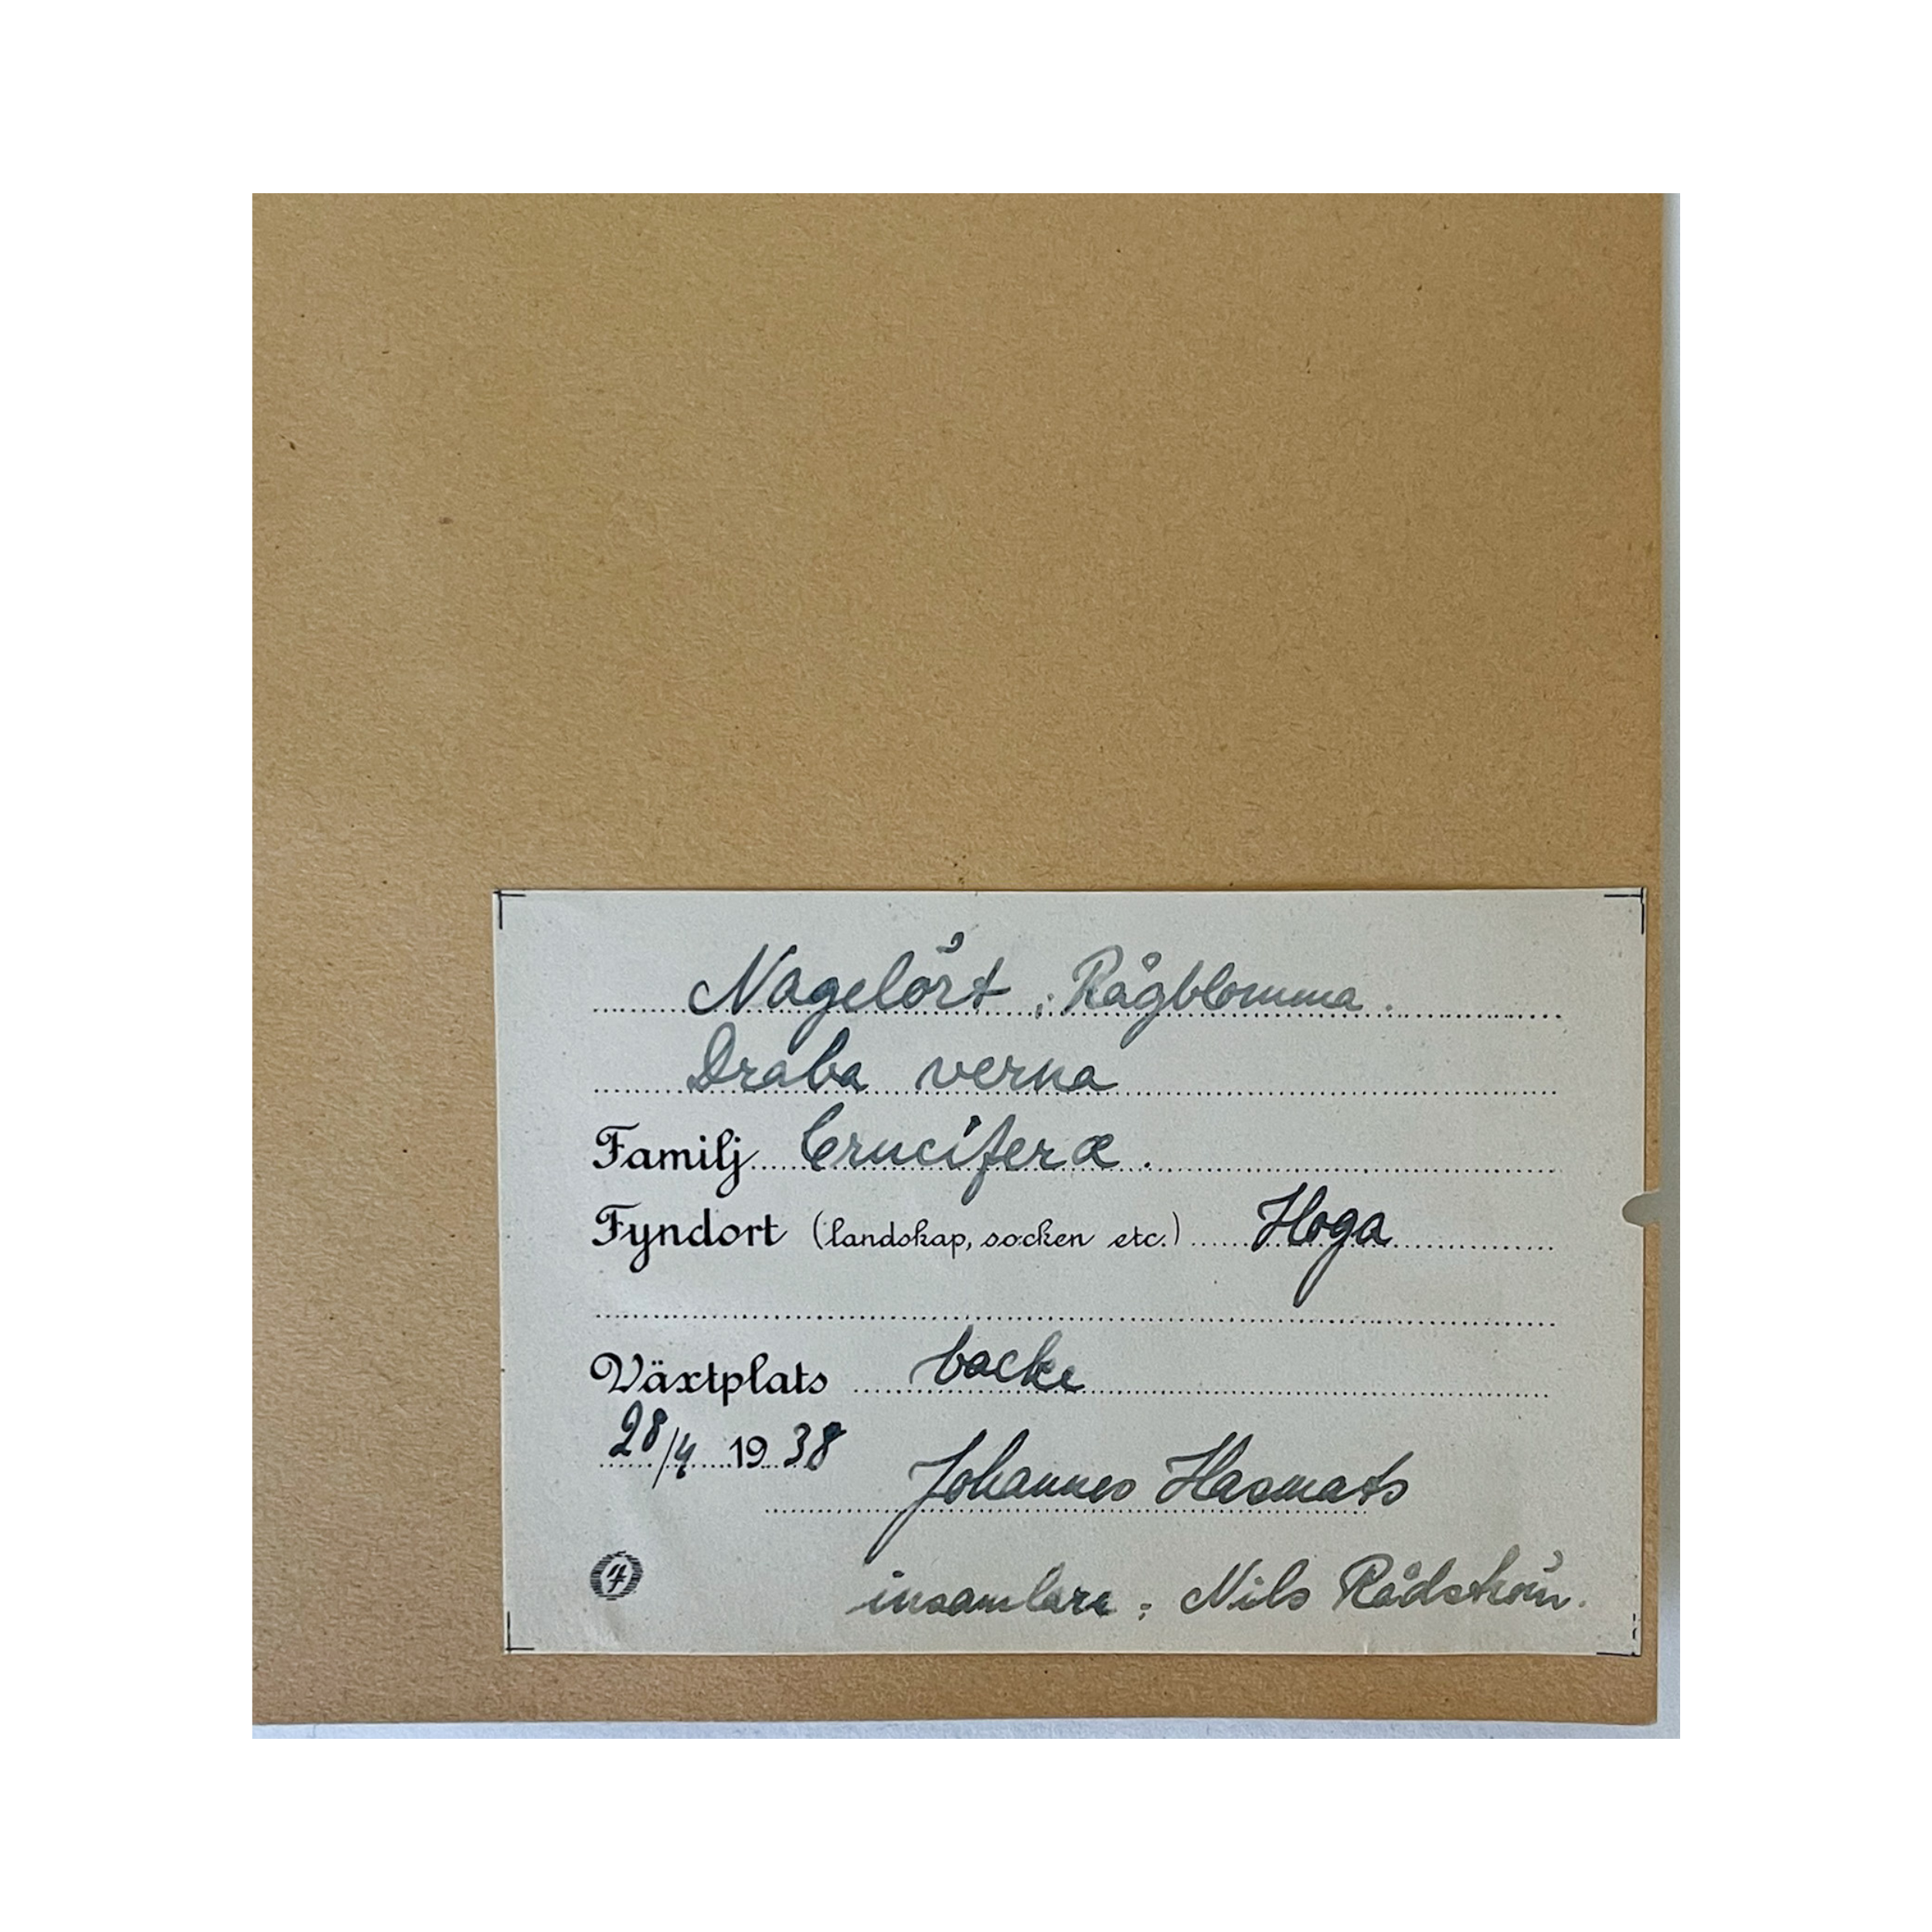 Nagelört, Rågblomma.
Draba verna
Familj Cruciferæ.
Fyndort (landskap, socken etc.) Hoga
Växtplats backe
28/4 1938
Johannes Hasmats
insamlare: Nils Rådström.